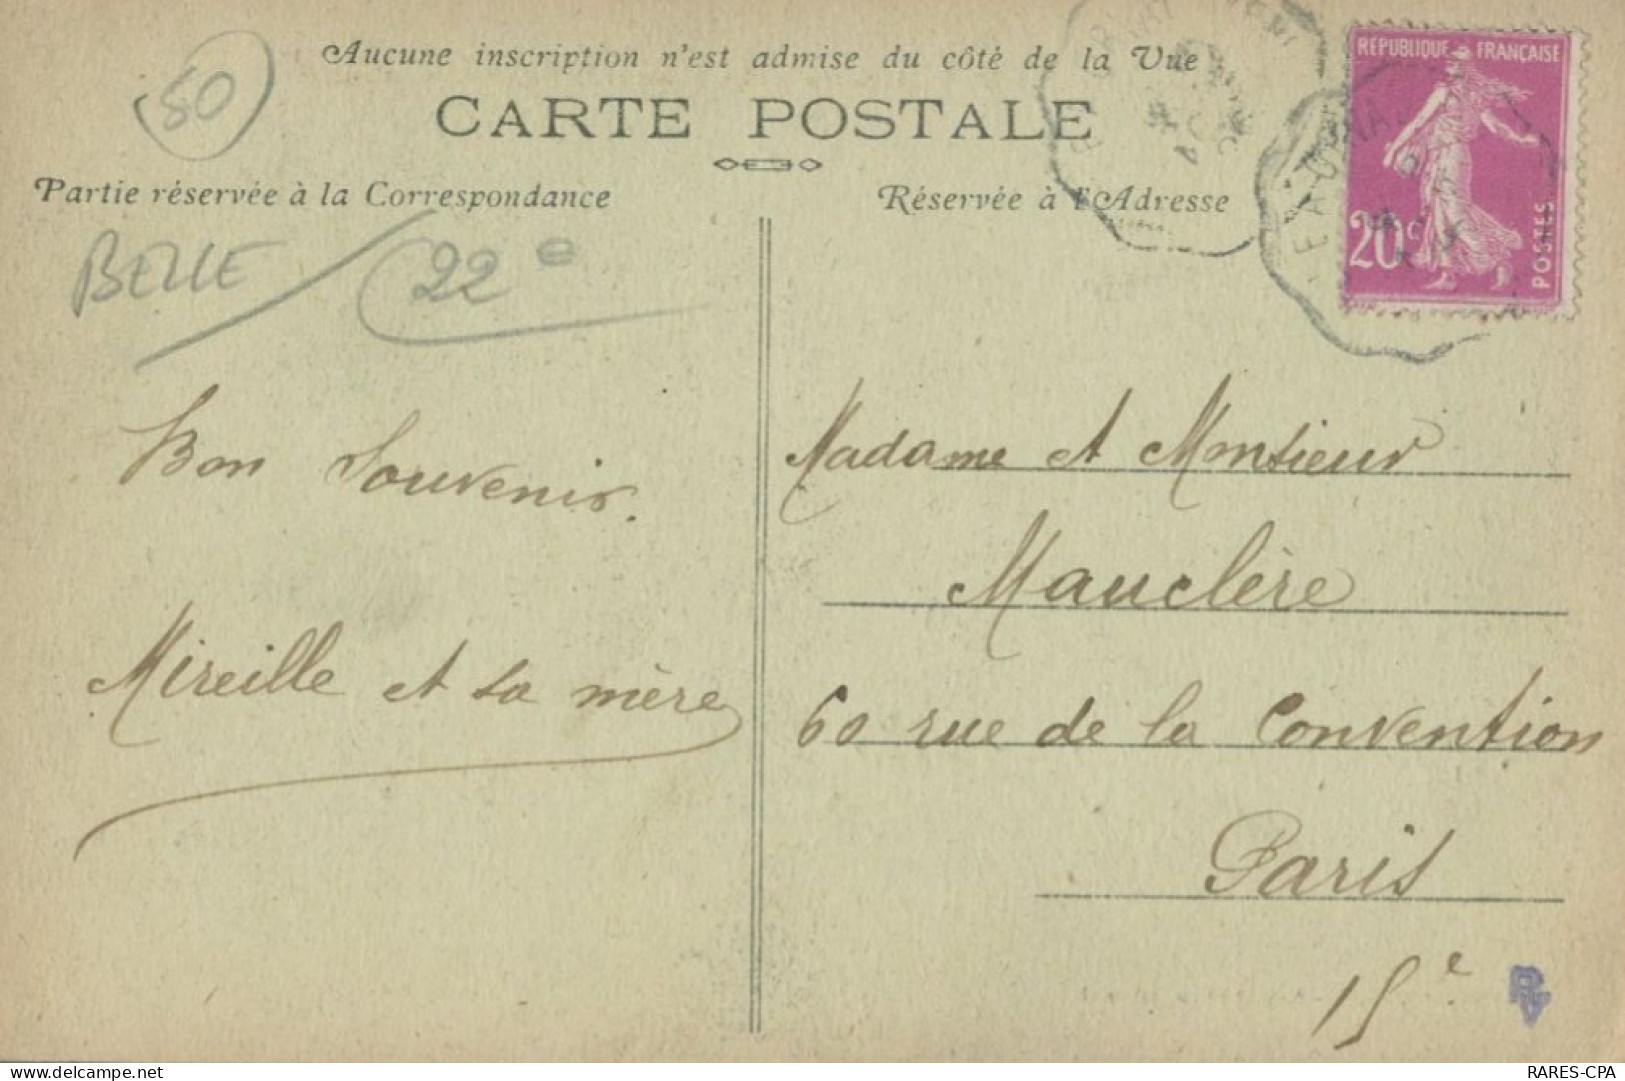 50
Aucune inscription n'est admise du côté de la Vue
CARTE POSTALE
Partie réservée à la Correspondance
Réservée à l'Adresse
RÉPUBLIQUE FRANÇAISE
20c
POSTES
BELLE / 22 e
Bon Souvenir.
Mireille et sa mère
Madame et Monsieur
Mauclère
60 rue de la Convention
Paris
15e
Delcampe.net
RARES-CPA